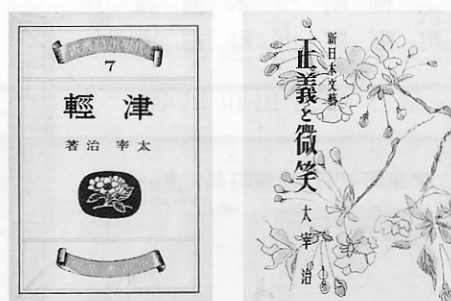 7
津輕
太宰治著
新日本文藝
正義と微笑
太宰治